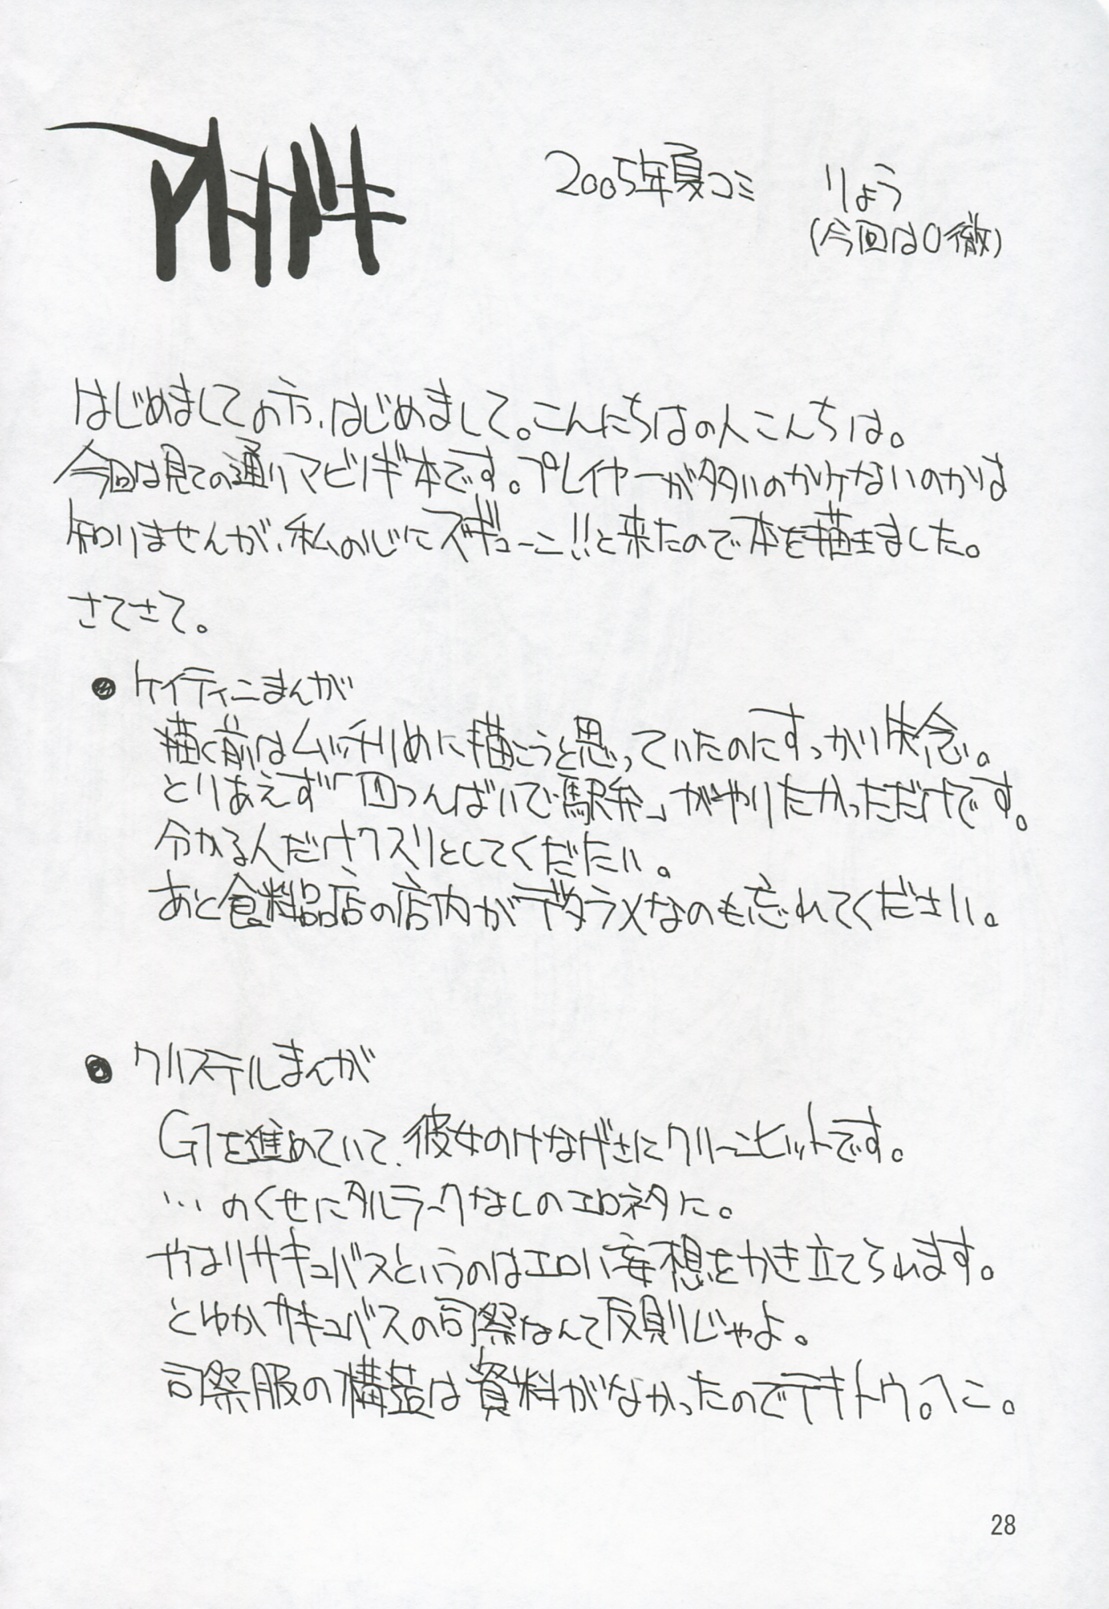 アトガキ
2005年夏コミ りょう
(今回は0徹)
はじめましての方、はじめまして。こんにちはの人こんちは。
今回は見ての通りマビノギ本です。プレイヤーが多いのか少ないのかは
知りませんが、私の心にズギューン!!と来たので本を描きました。
さてさて。
● ケイティンまんが
描く前はムッチリめに描こうと思っていたのにすっかり失念。
とりあえず「四つんばいで駅弁」がやりたかっただけです。
分かる人だけクスリとしてください。
あと食料品店の店内がデタラメなのも忘れてください。
● クリステルまんが
G1を進めていて、彼女のけなげさにクリーンヒットです。
…のくせにタルラークなしのエロネタに。
やはりサキュバスというのはエロい妄想をかき立てられます。
とゆかサキュバスの司祭なんて反則じゃよ。
司祭服の構造は資料がなかったのでテキトウ。へこ。
28